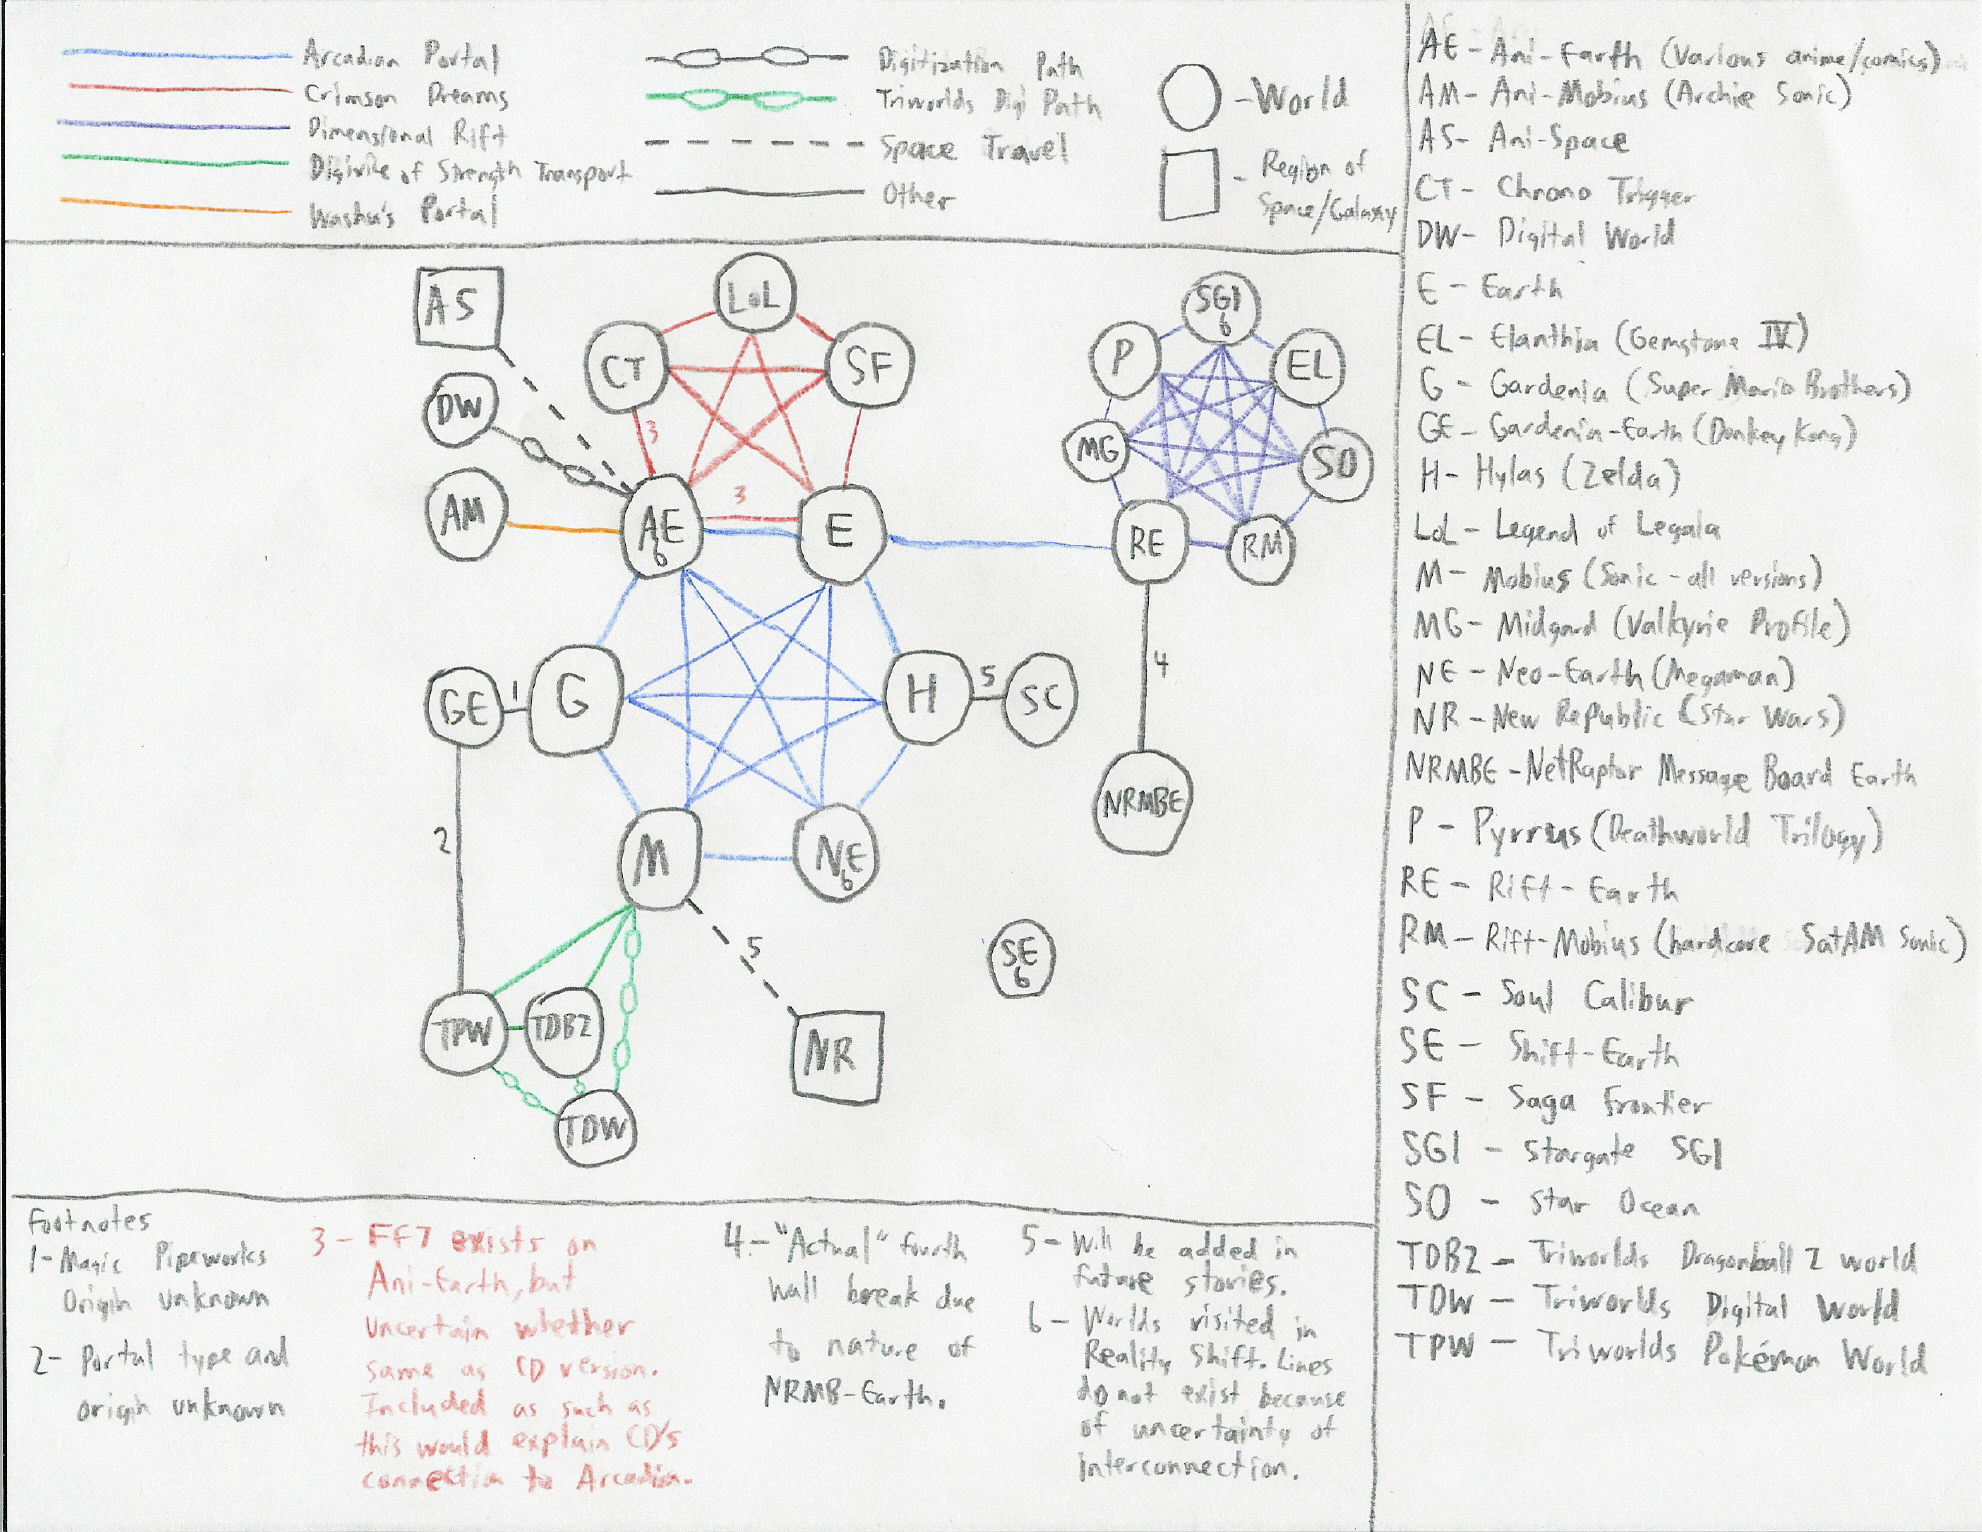 Arcadian Portal
Crimson Dreams
Dimensional Rift
Digivice of Strength Transport
Washu's Portal
Digitization Path
Triworlds Digi Path
Space Travel
Other
- World
- Region of
Space/Galaxy
AE - Ani-Earth (Various anime/comics)
AM - Ani-Mobius (Archie Sonic)
AS - Ani-Space
CT - Chrono Trigger
DW - Digital World
E - Earth
EL - Elanthia (Gemstone IV)
G - Gardenia (Super Mario Brothers)
GE - Gardenia-Earth (Donkey Kong)
H - Hylas (Zelda)
LoL - Legend of Legaia
M - Mobius (Sonic - all versions)
MG - Midgard (Valkyrie Profile)
NE - Neo-Earth (Megaman)
NR - New Republic (Star Wars)
NRMBE - NetRaptor Message Board Earth
P - Pyrrus (Deathworld Trilogy)
RE - Rift-Earth
RM - Rift-Mobius (hardcore SatAM Sonic)
SC - Soul Calibur
SE - Shift-Earth
SF - Saga Frontier
SG1 - Stargate SG1
SO - Star Ocean
TDBZ - Triworlds Dragonball Z world
TDW - Triworlds Digital World
TPW - Triworlds Pokémon World
AS
LoL
SG1
6
CT
SF
P
EL
DW
3
MG
SO
AM
3
AE
6
E
RE
RM
4
GE
1
G
H
5
SC
2
NRMBE
M
NE
6
5
SE
6
TPW
TDBZ
NR
TDW
Footnotes
1- Magic Pipeworks
Origin unknown
2- Portal type and
origin unknown
3 - FF7 exists on
Ani-Earth, but
uncertain whether
same as CD version.
Included as such as
this would explain CD's
connection to Arcadia.
4 - "Actual" fourth
wall break due
to nature of
NRMB-Earth.
5 - Will be added in
future stories.
6 - Worlds visited in
Reality Shift. Lines
do not exist because
of uncertainty of
interconnection.